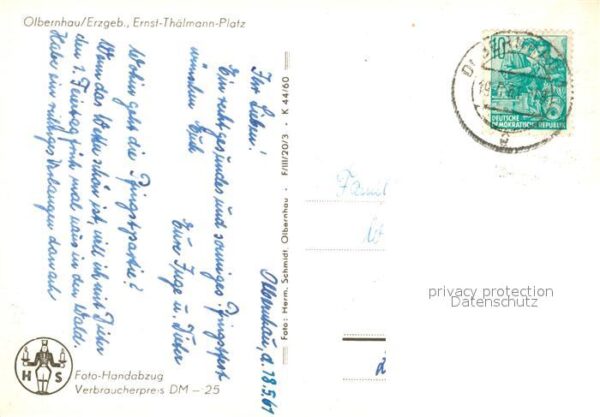 Olbernhau/Erzgeb., Ernst-Thälmann-Platz
Olbernhau, d. 18.5.61
Ihr Lieben!
Ein recht gesundes und sonniges Pfingstfest
wünschen Euch
Eure Inge u. Dieter
Wohin geht die Pfingstpartie?
Wenn das Wetter schön ist, will ich mit Dieter
den 1. Feiertag früh mal raus in den Wald.
Habe ein richtiges Verlangen danach
Foto: Herm. Schmidt, Olbernhau · F/III/20/3 · K 44/60
H S
Foto-Handabzug
Verbraucherpreis DM –.25
DEUTSCHE
DEMOKRATISCHE REPUBLIK
Fami
privacy protection
Datenschutz